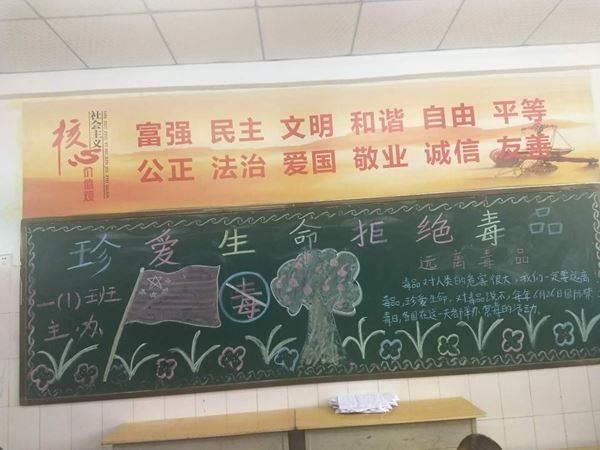 社会主义
核心
价值观
富强 民主 文明 和谐 自由 平等
公正 法治 爱国 敬业 诚信 友善
珍爱生命拒绝毒品
一(1)班
主办
毒
远离毒品
毒品对人类的危害很大,我们一定要远离
毒品,珍爱生命,对毒品说不,每年6月26日国际禁
毒日,各国在这一天都举办禁毒的活动.